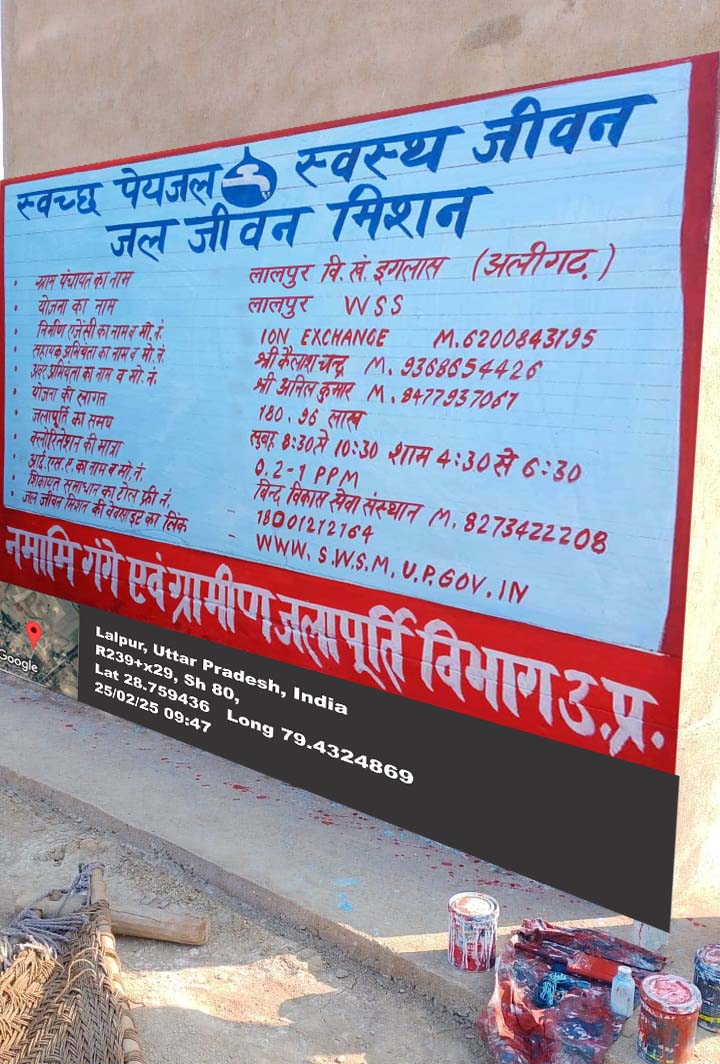 स्वच्छ पेयजल स्वस्थ जीवन
जल जीवन मिशन
• ग्राम पंचायत का नाम लालपुर वि. खं. इगलास (अलीगढ़)
• योजना का नाम लालपुर WSS
• निर्माण एजेंसी का नाम व मो. नं. ION EXCHANGE M.6200843195
• सहायक अभियंता का नाम व मो. नं. श्री कैलाश चन्द्र M. 9368654426
• अवर अभियंता का नाम व मो. नं. श्री अनिल कुमार M. 8477937067
• योजना की लागत 180.96 लाख
• जलापूर्ति का समय सुबह 8:30 से 10:30 शाम 4:30 से 6:30
• क्लोरिनेशन की मात्रा 0.2-1 PPM
• आई. एस. ए. का नाम व मो. नं. बिन्द विकास सेवा संस्थान M. 8273422208
• शिकायत समाधान का टोल फ्री नं. - 18001212164
• जल जीवन मिशन की वेबसाइट का लिंक - WWW. S.W.S.M. U.P.GOV.IN
नमामि गंगे एवं ग्रामीण जलापूर्ति विभाग उ.प्र.
Google
Lalpur, Uttar Pradesh, India
R239+x29, Sh 80,
Lat 28.759436 Long 79.4324869
25/02/25 09:47